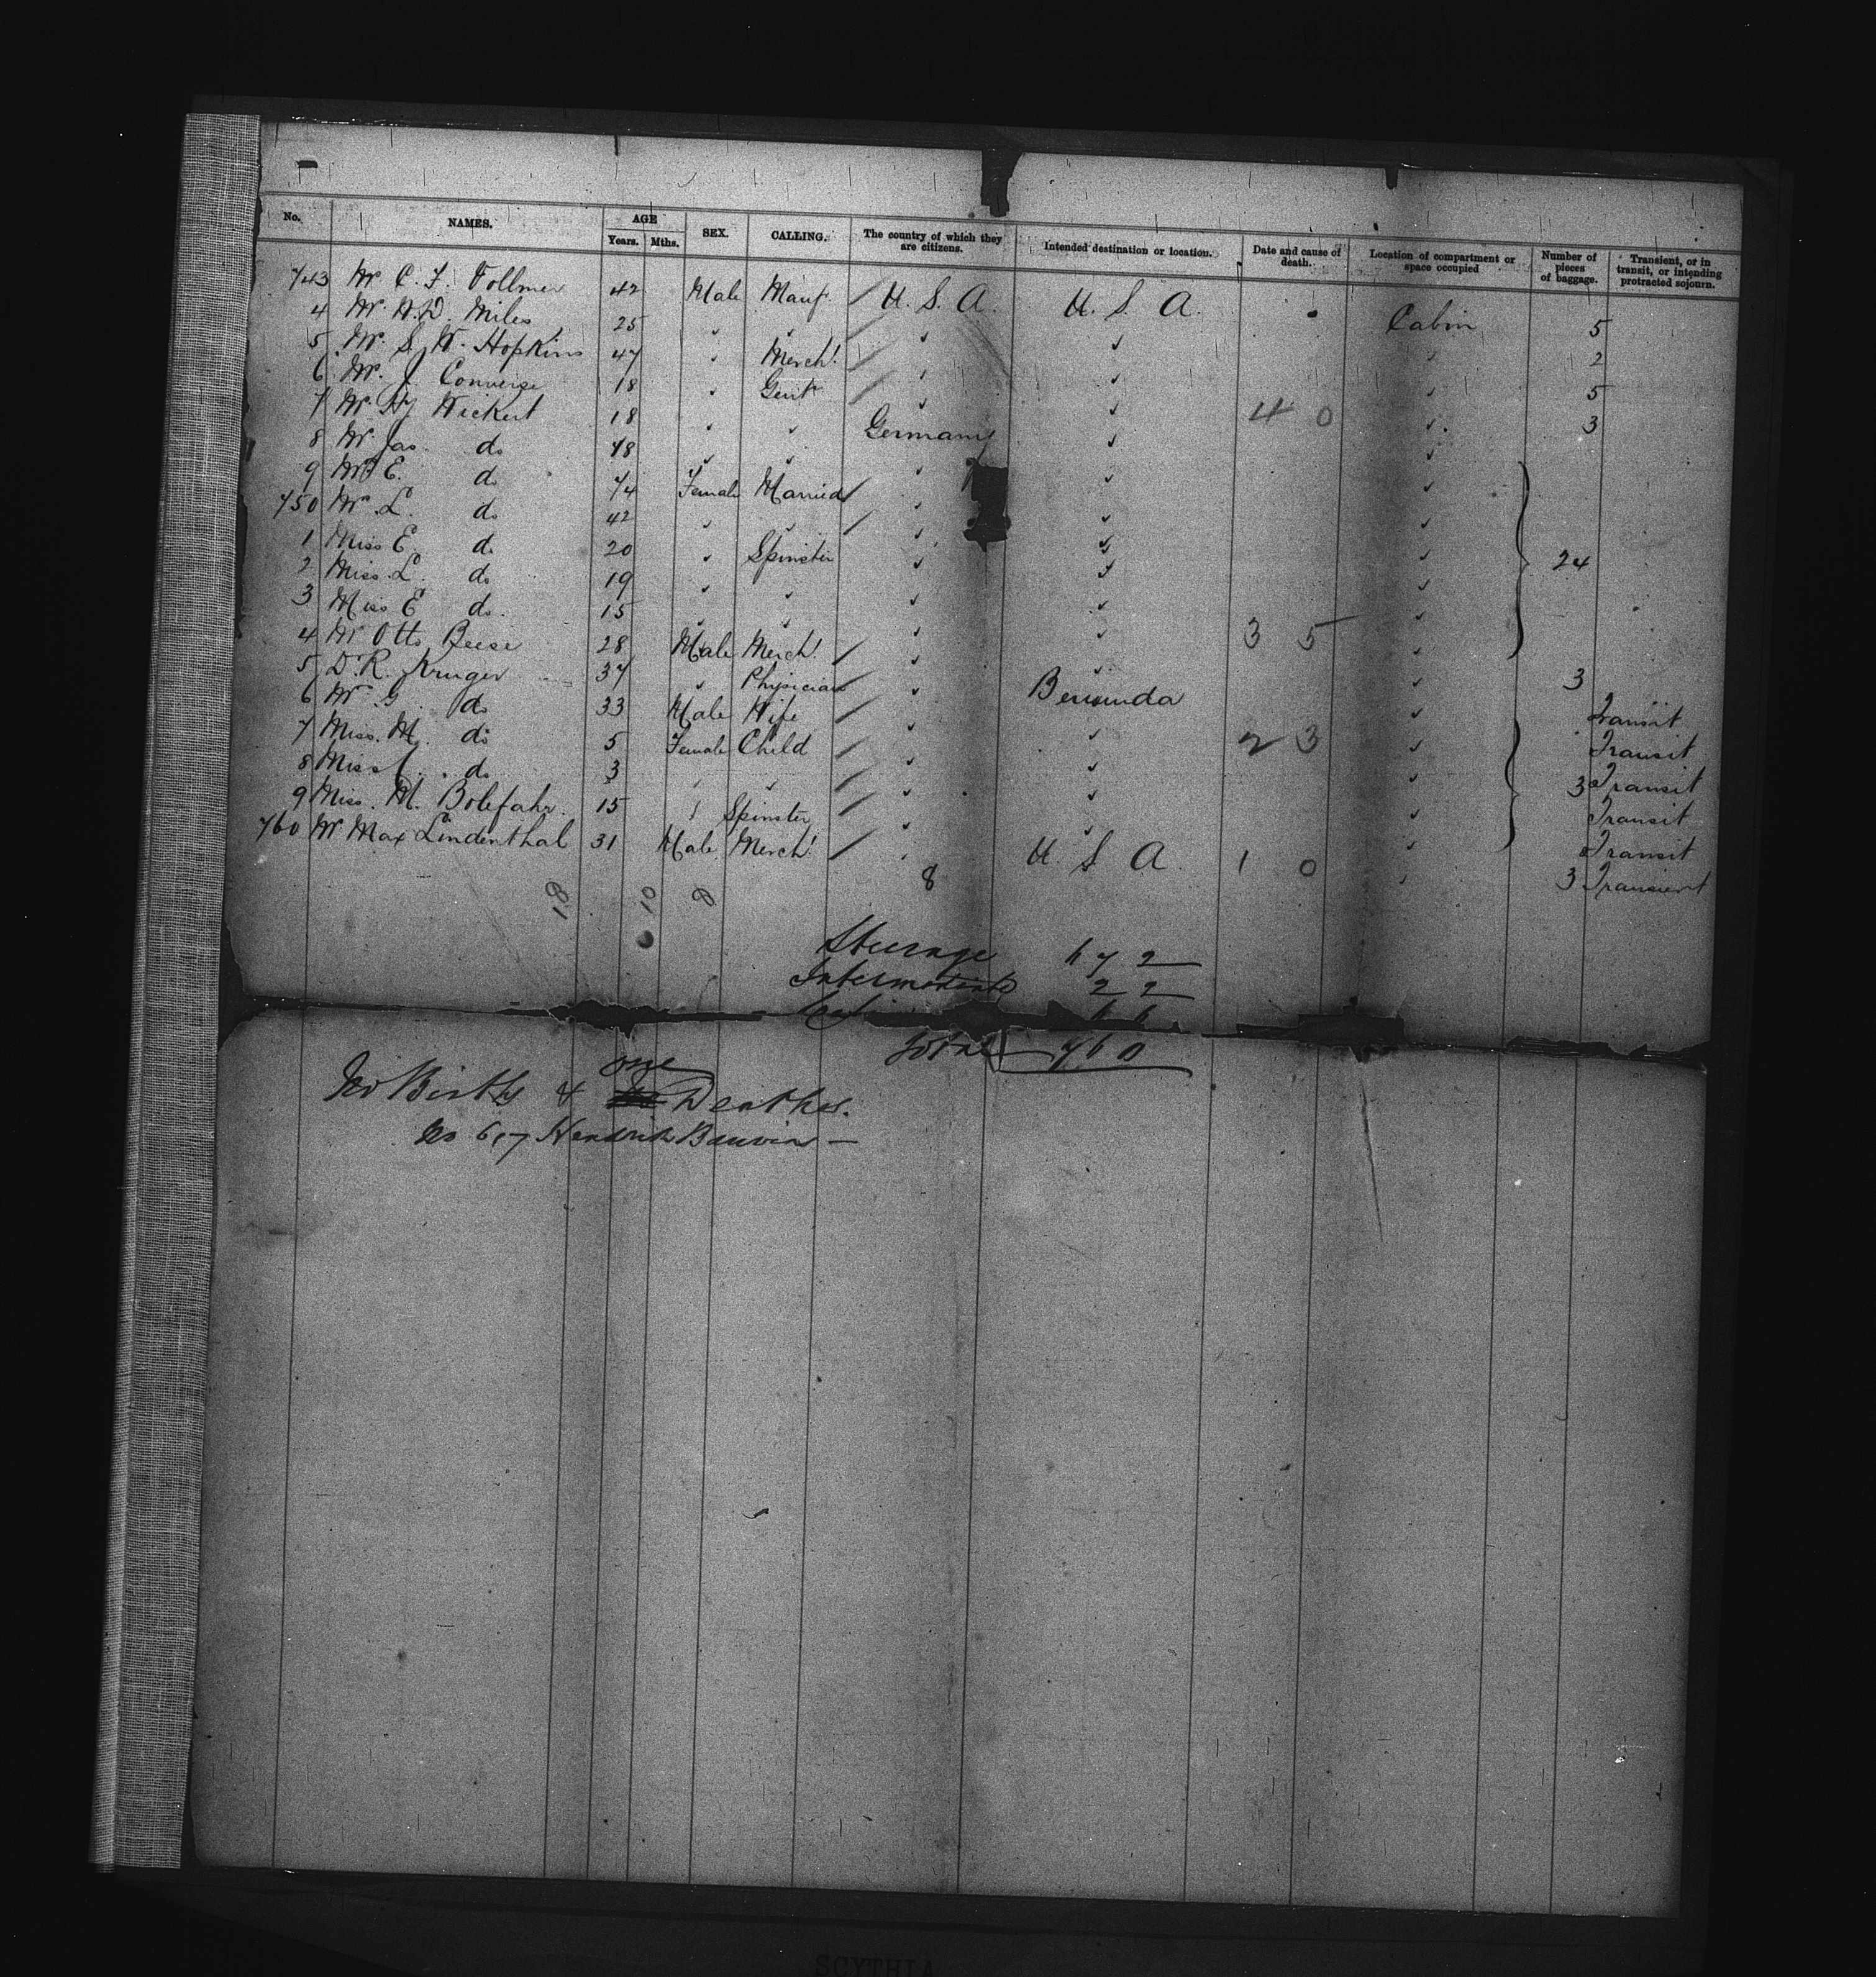 No. NAMES. AGE Years. Mths. SEX. CALLING. The country of which they are citizens. Intended destination or location. Date and cause of death. Location of compartment or space occupied Number of pieces of baggage. Transient, or in transit, or intending protracted sojourn.
743 Mr C. F. Vollmer 42 Male Manf. U. S. A. U. S. A. Cabin 5
4 Mr. Miles 25 " " " " " 2
5 Mr. S. W. Hopkins 47 " Mercht " " " 5
6 Mr. J Converse 18 " Gent " " 4 0 " 3
7 Mr Wickert 18 " " Germany " "
8 Mr Jas. do 18 " " " " "
9 E. do 74 Female Married " " "
750 L. do 42 " " " " "
1 Miss E do 20 " Spinster " " " 24
2 Miss L. do 19 " " " " "
3 Miss E do. 15 " " " " 3 5 "
4 Mr Otto Beese 28 Male Mercht " " " 3
5 Dr R. Kruger 37 " Physician " Bermuda " Transit
6 do 33 Male Wife " " 2 3 " Transit
7 Miss. M. do 5 Female Child " " " 3 Transit
8 Miss do 3 " " " " " Transit
9 Miss. M. Bolefahr. 15 " Spinster " " " Transit
760 Mr Max Lindenthal 31 Male Mercht " U. S. A. 1 0 " 3 Transient
18 10 8 8
Steerage 672
Intermediate 22
66
Total 760
No Births & one Deaths.
No 617 Hendrik
SCYTHIA